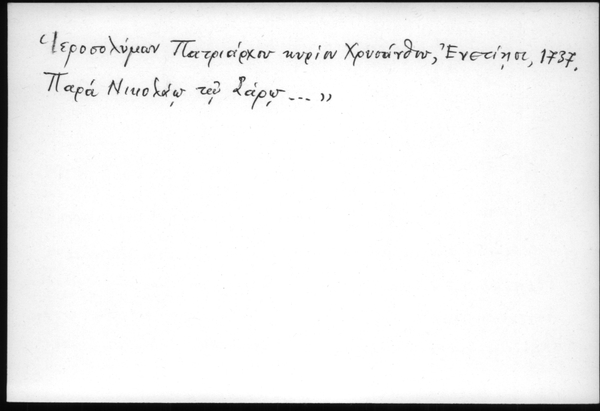 Ἱεροσολύμων Πατριάρχου κυρίου Χρυσάνθου, Ἐνετίησι, 1737.
Παρά Νικολάῳ τῷ Σάρῳ ... »